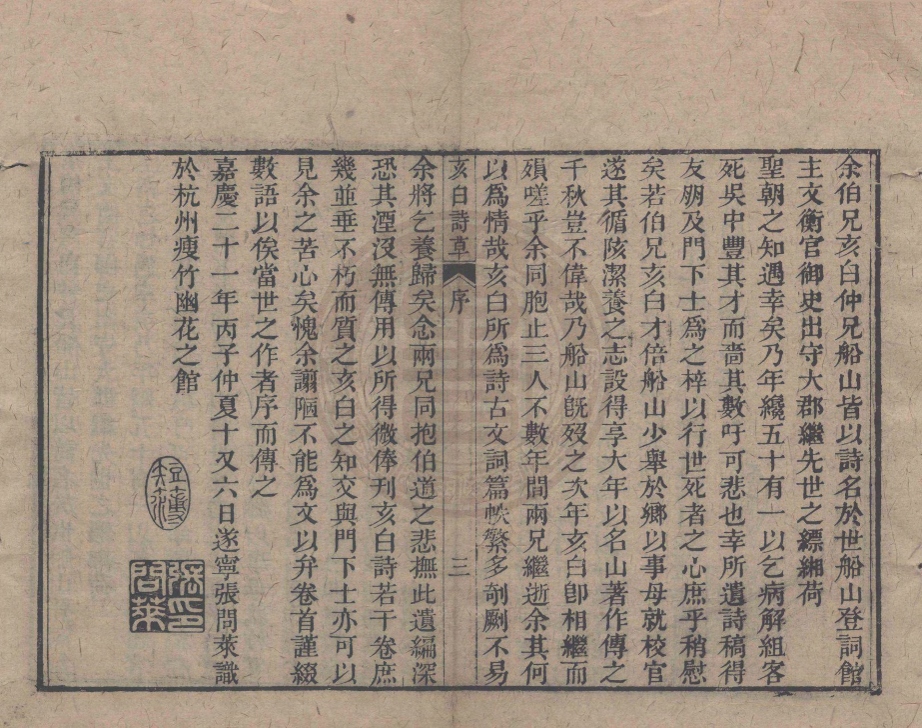 余伯兄亥白仲兄船山皆以詩名於世船山登詞館
主文衡官御史出守大郡繼先世之縹緗荷
聖朝之知遇幸矣乃年纔五十有一以乞病解組客
死吳中豐其才而嗇其數吁可悲也幸所遺詩稿得
友朋及門下士爲之梓以行世死者之心庶乎稍慰
矣若伯兄亥白才倍船山少舉於鄉以事母就校官
遂其循陔潔養之志設得享大年以名山著作傳之
千秋豈不偉哉乃船山旣歿之次年亥白卽相繼而
殞嗟乎余同胞止三人不數年間兩兄繼逝余其何
以爲情哉亥白所爲詩古文詞篇帙繁多剞劂不易
亥白詩草 序 三
余將乞養歸矣念兩兄同抱伯道之悲撫此遺編深
恐其湮沒無傳用以所得微俸刊亥白詩若干卷庶
幾並垂不朽而質之亥白之知交與門下士亦可以
見余之苦心矣愧余譾陋不能爲文以弁卷首謹綴
數語以俟當世之作者序而傳之
嘉慶二十一年丙子仲夏十又六日遂寧張問萊識
於杭州瘦竹幽花之館
張印問萊